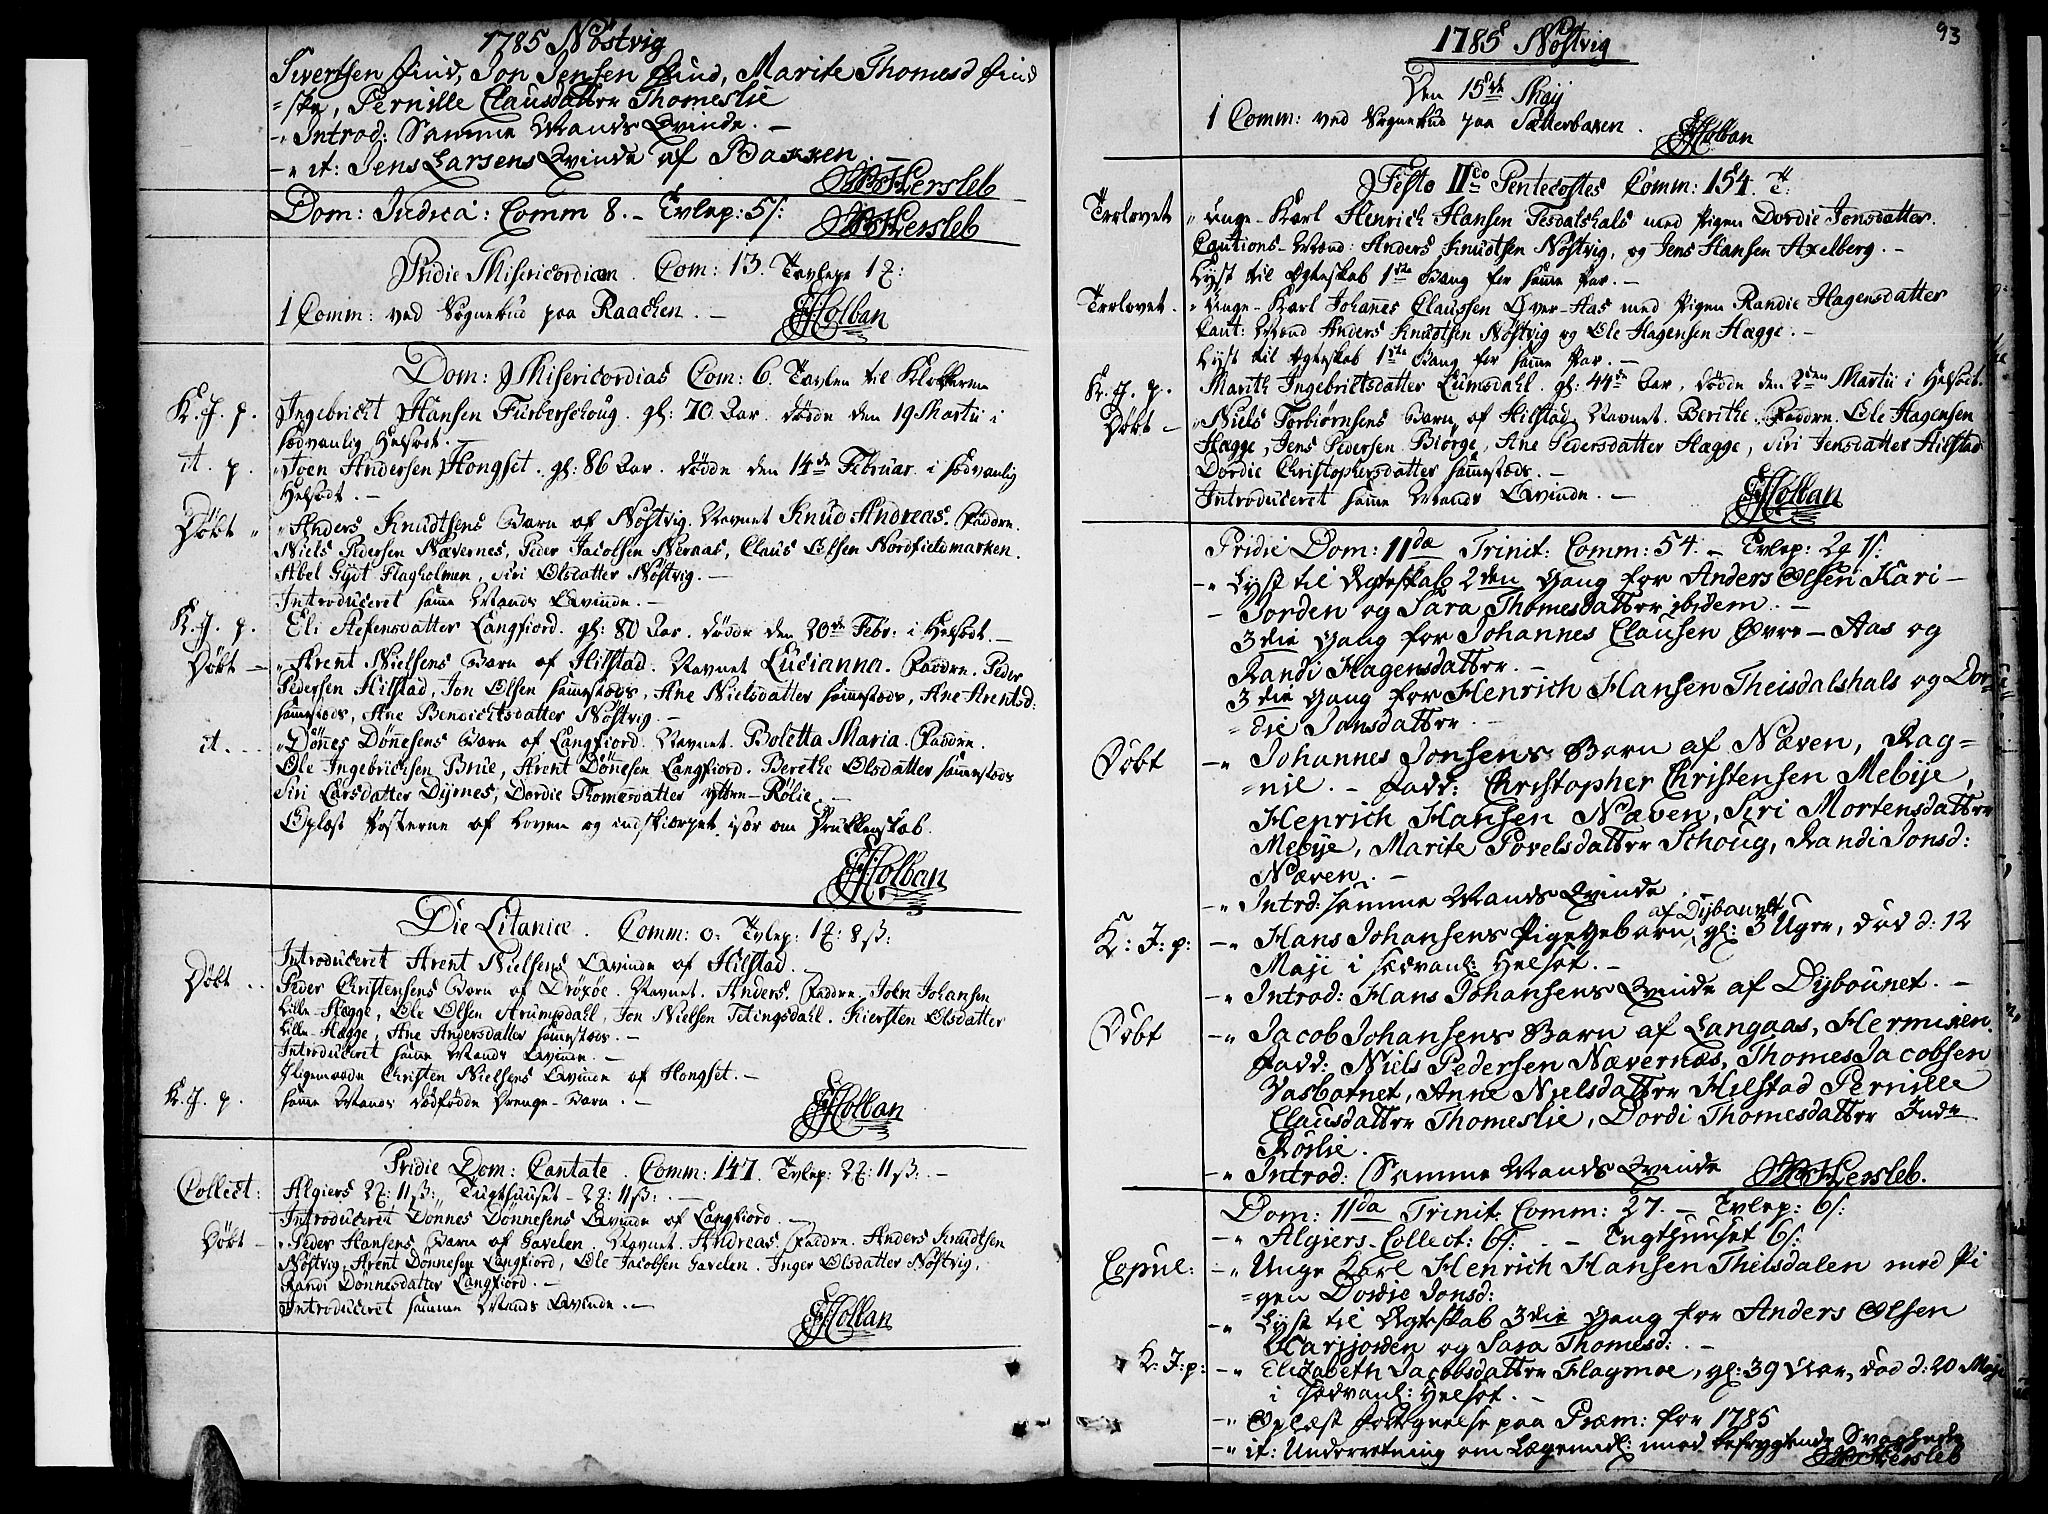 1785 Nöstvig
Sivertsen Find, Jon Jensen Find, Marite Thomesd Find
=ske, Pernille Clausdatter Thomeslie
-" Introd: Samme Mands Qvinde. -
-" it: Jens Larsens Qvinde af Bakken. -
Hersleb
Dom: Judica: Comm 8. - Tvlep: 5/:
Hersleb
Pridie Misericordiam. Com: 13. Tavlep 1
1 Comm: ved Sognebud paa Raachen. -
Holban
Dom: Misericordias Com: 6. Tavlen til Klokkeren
K. J. p. Ingebricht Hansen Furberschoug. gl: 70 Aar. døde den 19 Martii i
sædvanlig Helsodt. -
it. p. "Joen Andersen Hongset. gl: 86 Aar. døde den 14de Februar. i sædvanlig
Helsodt. -
Døbt " "Anders Knudtsens Barn af Nöstvig. Navnet Knud Andreas. Faddre.
Niels Pedersen Nævernes, Peder Jacobsen Neraas, Claus Olsen Nordfieldmarken.
Abel Gydt Flagholmen, Siri Olsdatter Nöstvig. -
Introduceret samme Mands Qvinde. -
K. J. p. Eli Stefensdatter Langfiord. gl: 80 Aar. døde den 20de Febr: i Helsodt. -
Døbt - "Arent Nielsens Barn af Hilstad. Navnet Lucianna. Faddre. Peder
Pedersen Hilstad, Jon Olsen sammesteds, Ane Nielsdatter sammesteds, Ane Arentsd:
sammesteds, Ane Bendichtsdatter Nöstvig. -
it. . . "Dönes Dönnesens Barn af Langfiord. Navnet. Boletta Maria. Faddre.
Ole Ingebrichsen Brue, Arent Dönnesen Langfiord. Berethe Olsdatter sammesteds
Siri Larsdatter Dyrnes, Dordie Thomesdatter yttre-Rölie. -
Oplæst Posterne af Loven og indskiærpet isør om Drukkenskab.
Holban
Die Litaniæ. Comm: 0. Tvlep: 1 : 8 ß: -
Introduceret Arent Nielsens Qvinde af Hilstad. -
Døbt . . Peder Christensens Barn af Dröxöe. Navnet. Anders. Faddre. Joen Johansen
Lille-Hægge, Ole Olsen Arumsdahl, Jon Nielsen Tetingsdahl. Kiersten Olsdatter
Lille-Hægge, Ane Andersdatter sammesteds. -
Introduceret samme Mands Qvinde. -
Ligemaade Christen Nielsens Qvinde af Hongset. -
K. J. p. samme Mands dødfødde Drenge-Barn. -
Holban
Pridie Dom: Cantate. Comm: 147. Tvlep: 2 : 11 ß: -
Collect: Algiers 2 : 11 ß: " Tugthuuset - 2 : 11 ß: -
Introduceret Dönnes Dönnesens Qvinde af Langfiord. -
Døbt - "Peder Hansens Barn af Gavelen. Navnet. Andreas. Faddre. Anders Knudtsen
Nöstvig, Arent Dönnesen Langfiord, Ole Jacobsen Gavelen. Inger Olsdatter Nöstvig,
Randi Dönnesdatter Langfiord. -
Introduceret samme Mands Qvinde. -
Holban
93
1785 Nöstvig
Den 15de Maij
1 Comm: ved Sognebud paa Sætterbaken.
Holban
Festo IIdo Pentecostes Comm: 154. T:
Trolovet " Unge-Karl Henrich Hansen Tesdalshals med Pigen Dordie Jonsdatter.
Cautions-Mænd: Anders Knudtsen Nöstvig, og Jens Hansen Axelberg. -
Lyst til Ægteskab 1ste Gang for samme Par. -
Trolovet. " Unge-Karl Johannes Claussen Over-Aas med Pigen Randie Hagensdatter
Caut: Mænd Anders Knudtsen Nöstvig og Ole Hagensen Hægge. -
Lyst til Ægteskab 1ste Gang for samme Par. -
K. J. p. Marith Ingebrittsdatter Lumsdahl. gl: 44de Aar, døde den 2den Martii i Helsodt.
Døbt - "Niels Torbiörnsens Barn, af Hilstad, Navnet. Berithe. Faddre. Ole Hagensen
Hægge, Jens Pedersen Biörge, Ane Pedersdatter Hægge, Siri Jensdatter Hilstad
Dordie Christophersdatter sammesteds. -
Introduceret samme Mands Qvinde. -
Holban
Pridie Dom: 11da Trinit: Comm: 54. - Tvlep: 2 1/:
-" Lyst til Ægteskab 2den Gang for Anders Olsen Kari-
- Jorden og Sara Thomesdatter ibidem. -
3die Gang for Johannes Clausen Øvre-Aas og
Randi Hagensdatter. -
3die Gang for Henrich Hansen Theisdalshals og Dor=
=die Jonsdatter. -
Døbt -" Johannes Jonsens Barn af Næven, Rag=
=nil. - Fadd: Christopher Christensen Mebye,
Henrich Hansen Næven, Siri Mortensdatter
Mebye, Marite Povelsdatter Schoug, Randi Jonsd:
Næven. -
-" Introd: samme Mands Qvinde. -
K: J: p: -" Hans Johansens Pigebarn af Dybounet, gl: 3 Uger, død d: 12
Maji i sædvanl: Helsot. -
-" Introd: Hans Johansens Qvinde af Dybounet. -
Døbt -" Jacob Johansens Barn af Langaas, Hermiken.
Fadd: Niels Pedersen Nævernæs, Thomes Jacobsen
Vasbotnet, Anne Nielsdatter Hilstad Pernille
Clausdatter Thomeslie, Dordi Thomesdatter Inde
Rörlie.
-" Introd: Samme Mands Qvinde
Hersleb.
Dom: 11da Trinit: Comm: 27. - Tvlep: 6/:
-" Algiers-Collect: 6/: - Tugthuuset 6/:
Copul: -" Unge Karl Henrich Hansen Theisdalen med Pi
=gen Dordie Jonsd:
-" Lyst til Ægteskab 3die Gang for Anders Olsen
Karijorden og Sara Thomesd: . -
K: J: p: -" Elizabeth Jacobsdatter Flagmoe, gl: 39 Aar, død d: 20 Maji
i sædvanl: Helsot. -
-" Oplæst Fortegnelse paa Præm: for 1785
-" it: Underretning om Lægemidl: imod befrygtende Svaghede
Hersleb